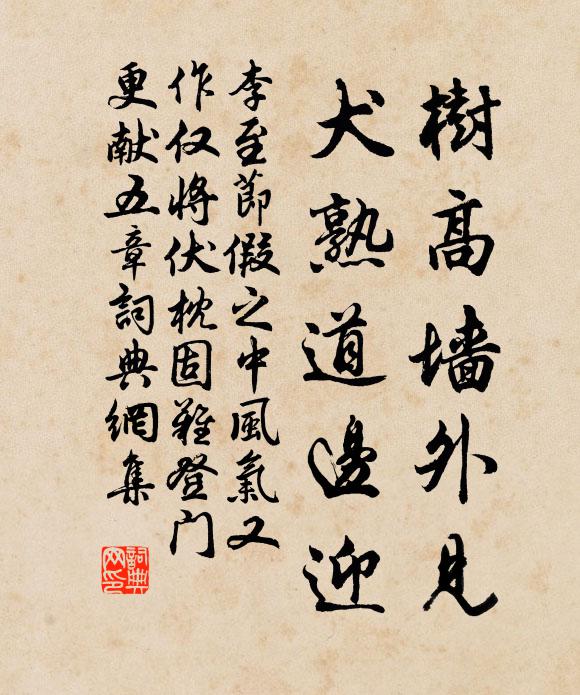 樹高墙外見
犬熟道邊迎
李至節假之中風氣又
作仅將伏枕固難登门
更献五章詞典網集
詞典
网印